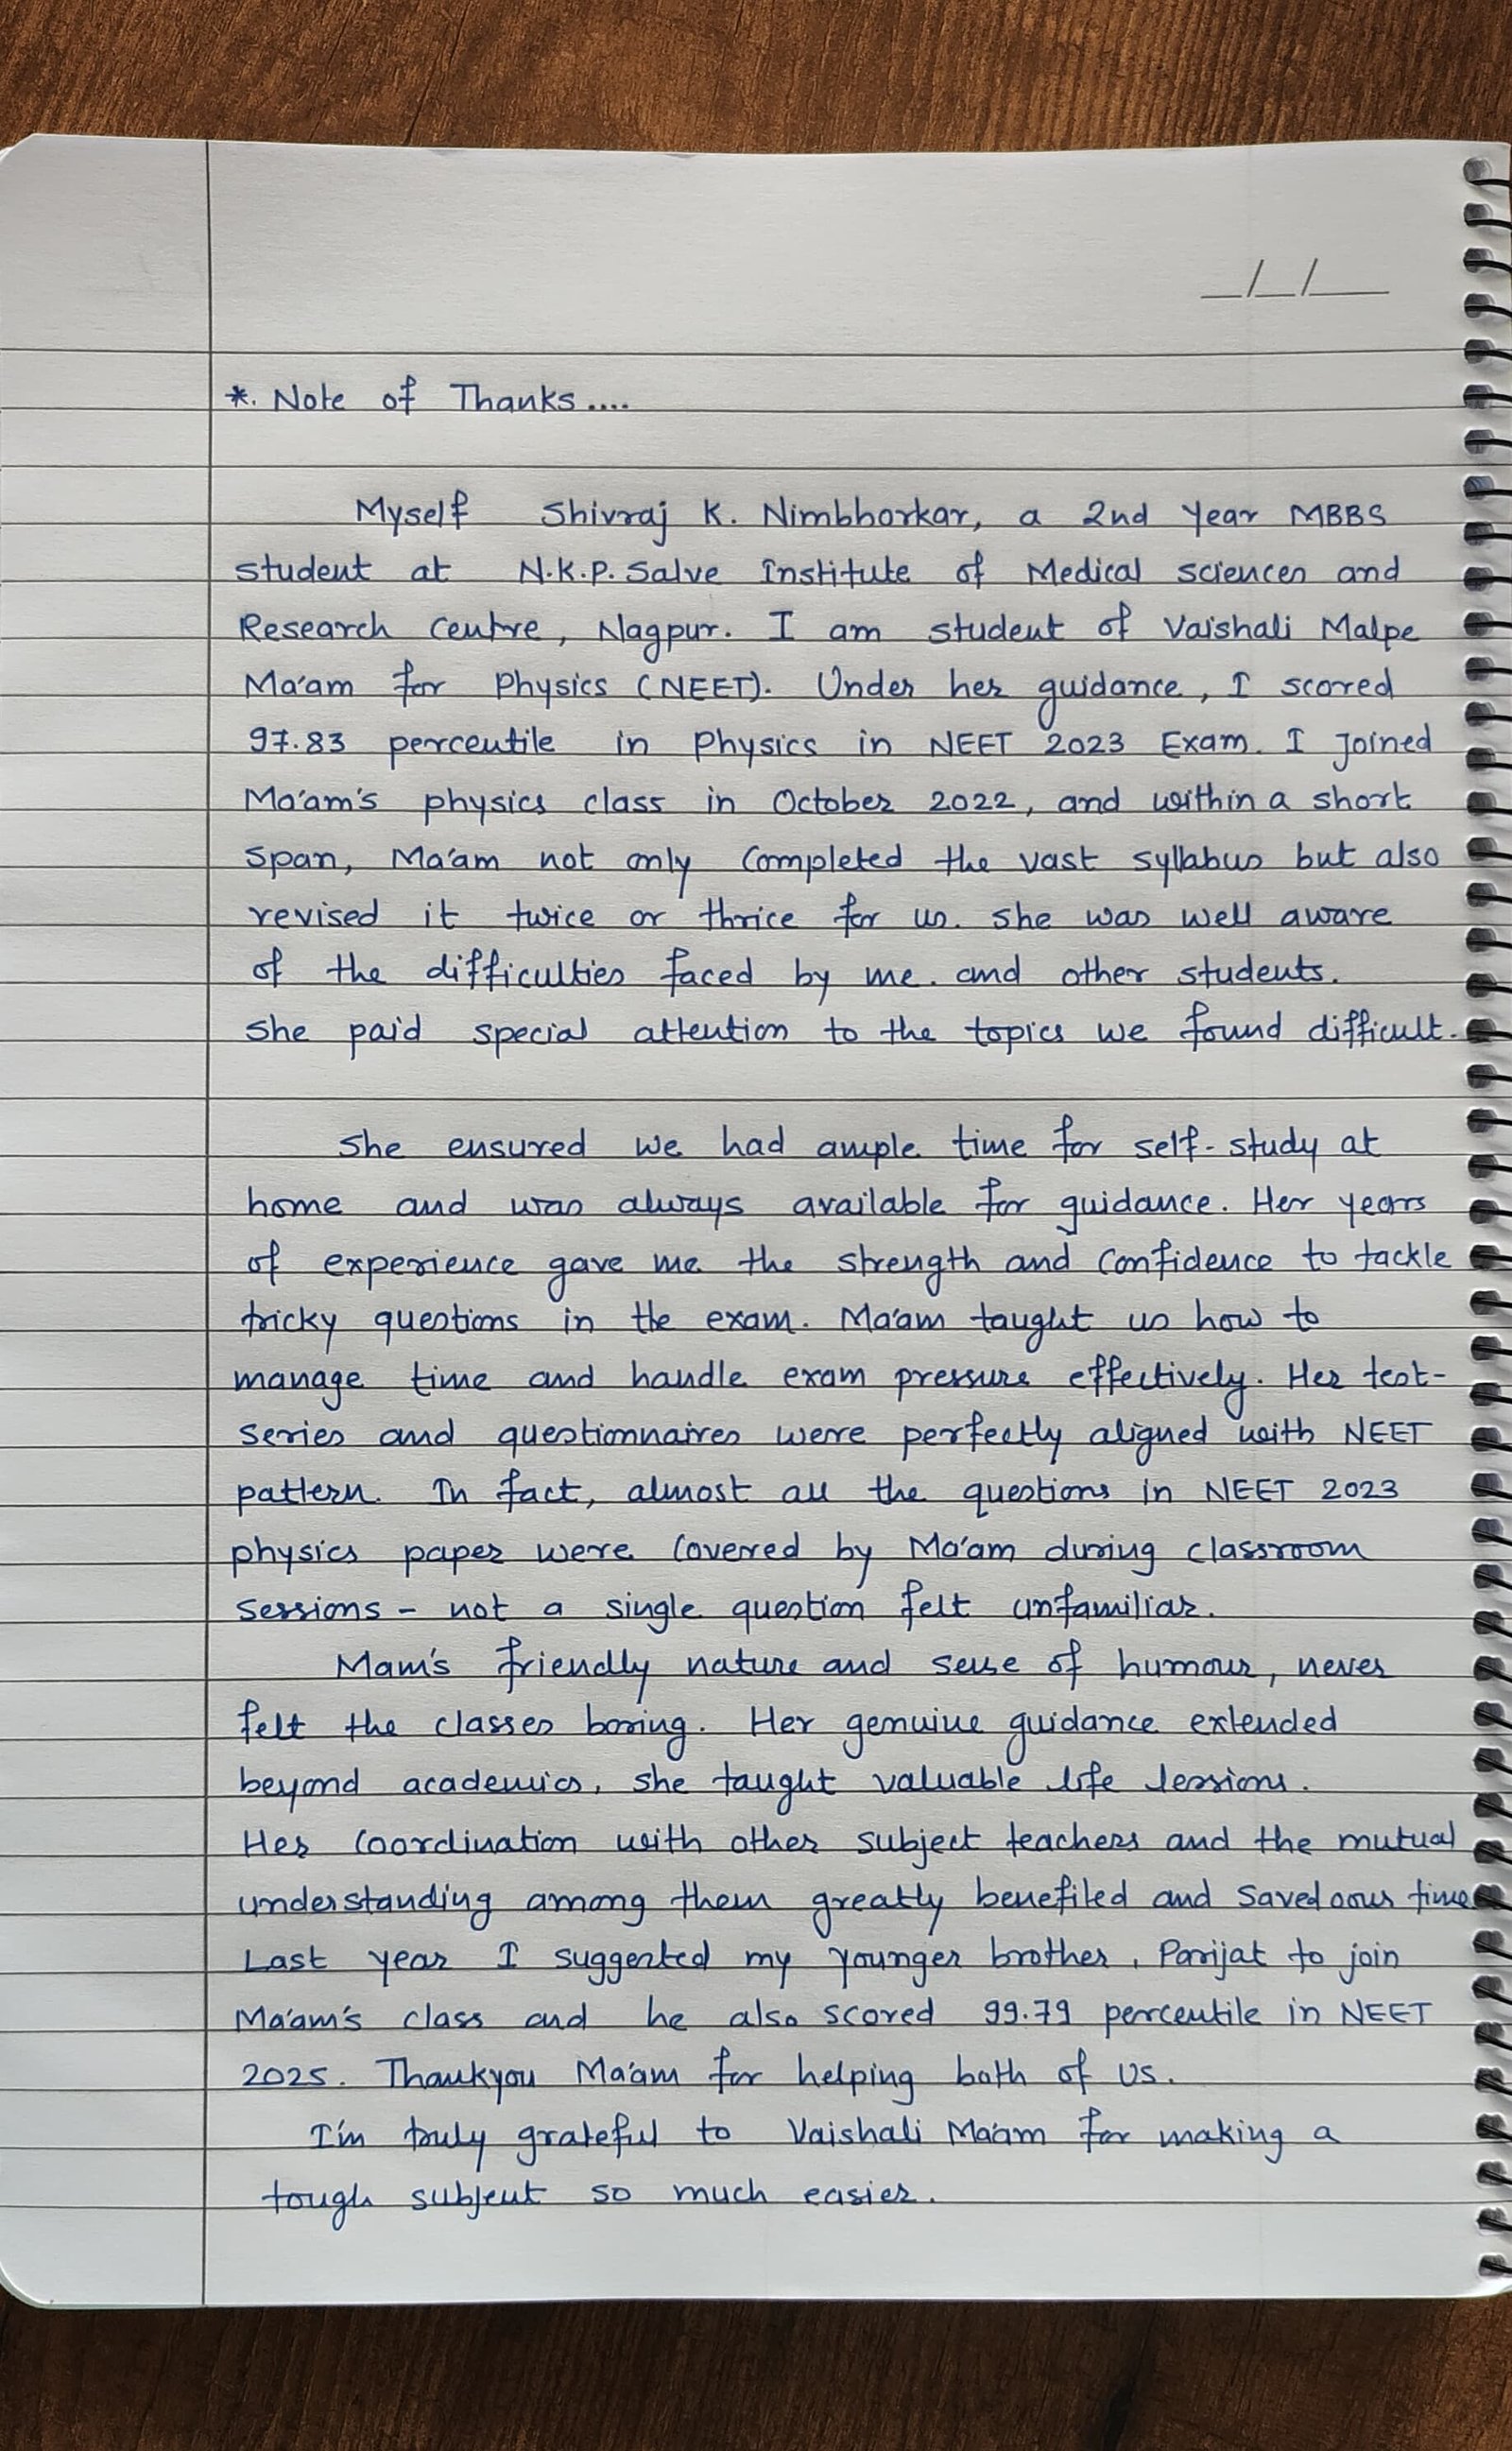 _/_/__
*. Note of Thanks....
Myself Shivraj K. Nimbhorkar, a 2nd Year MBBS
student at N.K.P. Salve Institute of Medical sciences and
Research centre, Nagpur. I am student of Vaishali Malpe
Ma'am for Physics (NEET). Under her guidance, I scored
97.83 percentile in Physics in NEET 2023 Exam. I joined
Ma'am's physics class in October 2022, and within a short
span, Ma'am not only completed the vast syllabus but also
revised it twice or thrice for us. She was well aware
of the difficulties faced by me. and other students.
She paid special attention to the topics we found difficult.
She ensured we had ample time for self-study at
home and was always available for guidance. Her years
of experience gave me the strength and confidence to tackle
tricky questions in the exam. Ma'am taught us how to
manage time and handle exam pressure effectively. Her test-
series and questionnaires were perfectly aligned with NEET
pattern. In fact, almost all the questions in NEET 2023
physics paper were covered by Ma'am during classroom
sessions - not a single question felt unfamiliar.
Mam's friendly nature and sense of humour, never
felt the classes boring. Her genuine guidance extended
beyond academics, she taught valuable life lessions.
Her coordination with other subject teachers and the mutual
understanding among them greatly benefited and saved our time
Last year I suggested my younger brother, Parijat to join
Ma'am's class and he also scored 99.79 percentile in NEET
2025. Thankyou Ma'am for helping both of us.
I'm truly grateful to Vaishali Ma'am for making a
tough subject so much easier.